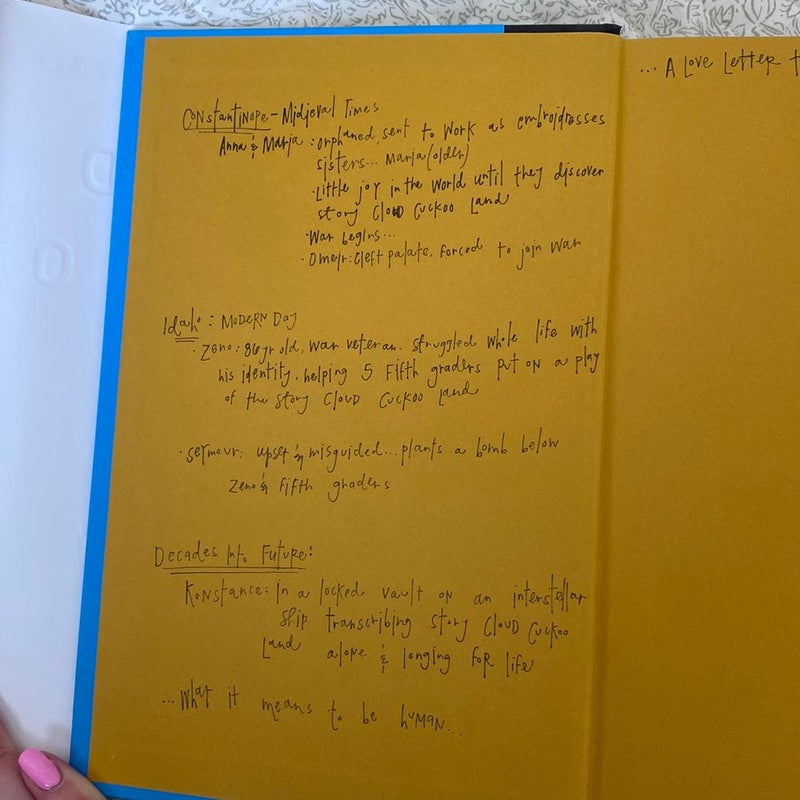 Constantinope - Midieval Times
Anna & Maria : orphaned, sent to work as embroidresses
sisters... Maria (older)
· Little joy in the world until they discover
story Cloud Cuckoo Land
· War begins...
· Omeir: Cleft palate, forced to join war
Idaho : Modern Day
· Zeno : 86 yr old, war veteran. struggled whole life with
his identity. helping 5 fifth graders put on a play
of the story Cloud Cuckoo Land
· Seymour: upset & misguided... plants a bomb below
Zeno & fifth graders
Decades Into Future:
Konstance: In a locked vault on an interstellar
ship transcribing story Cloud Cuckoo
Land alone & longing for life
... What it means to be human...
... A Love Letter t